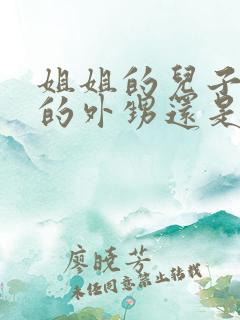 姐姐的兒子
的外甥還是
廖曉芳
未經同意禁止轉載